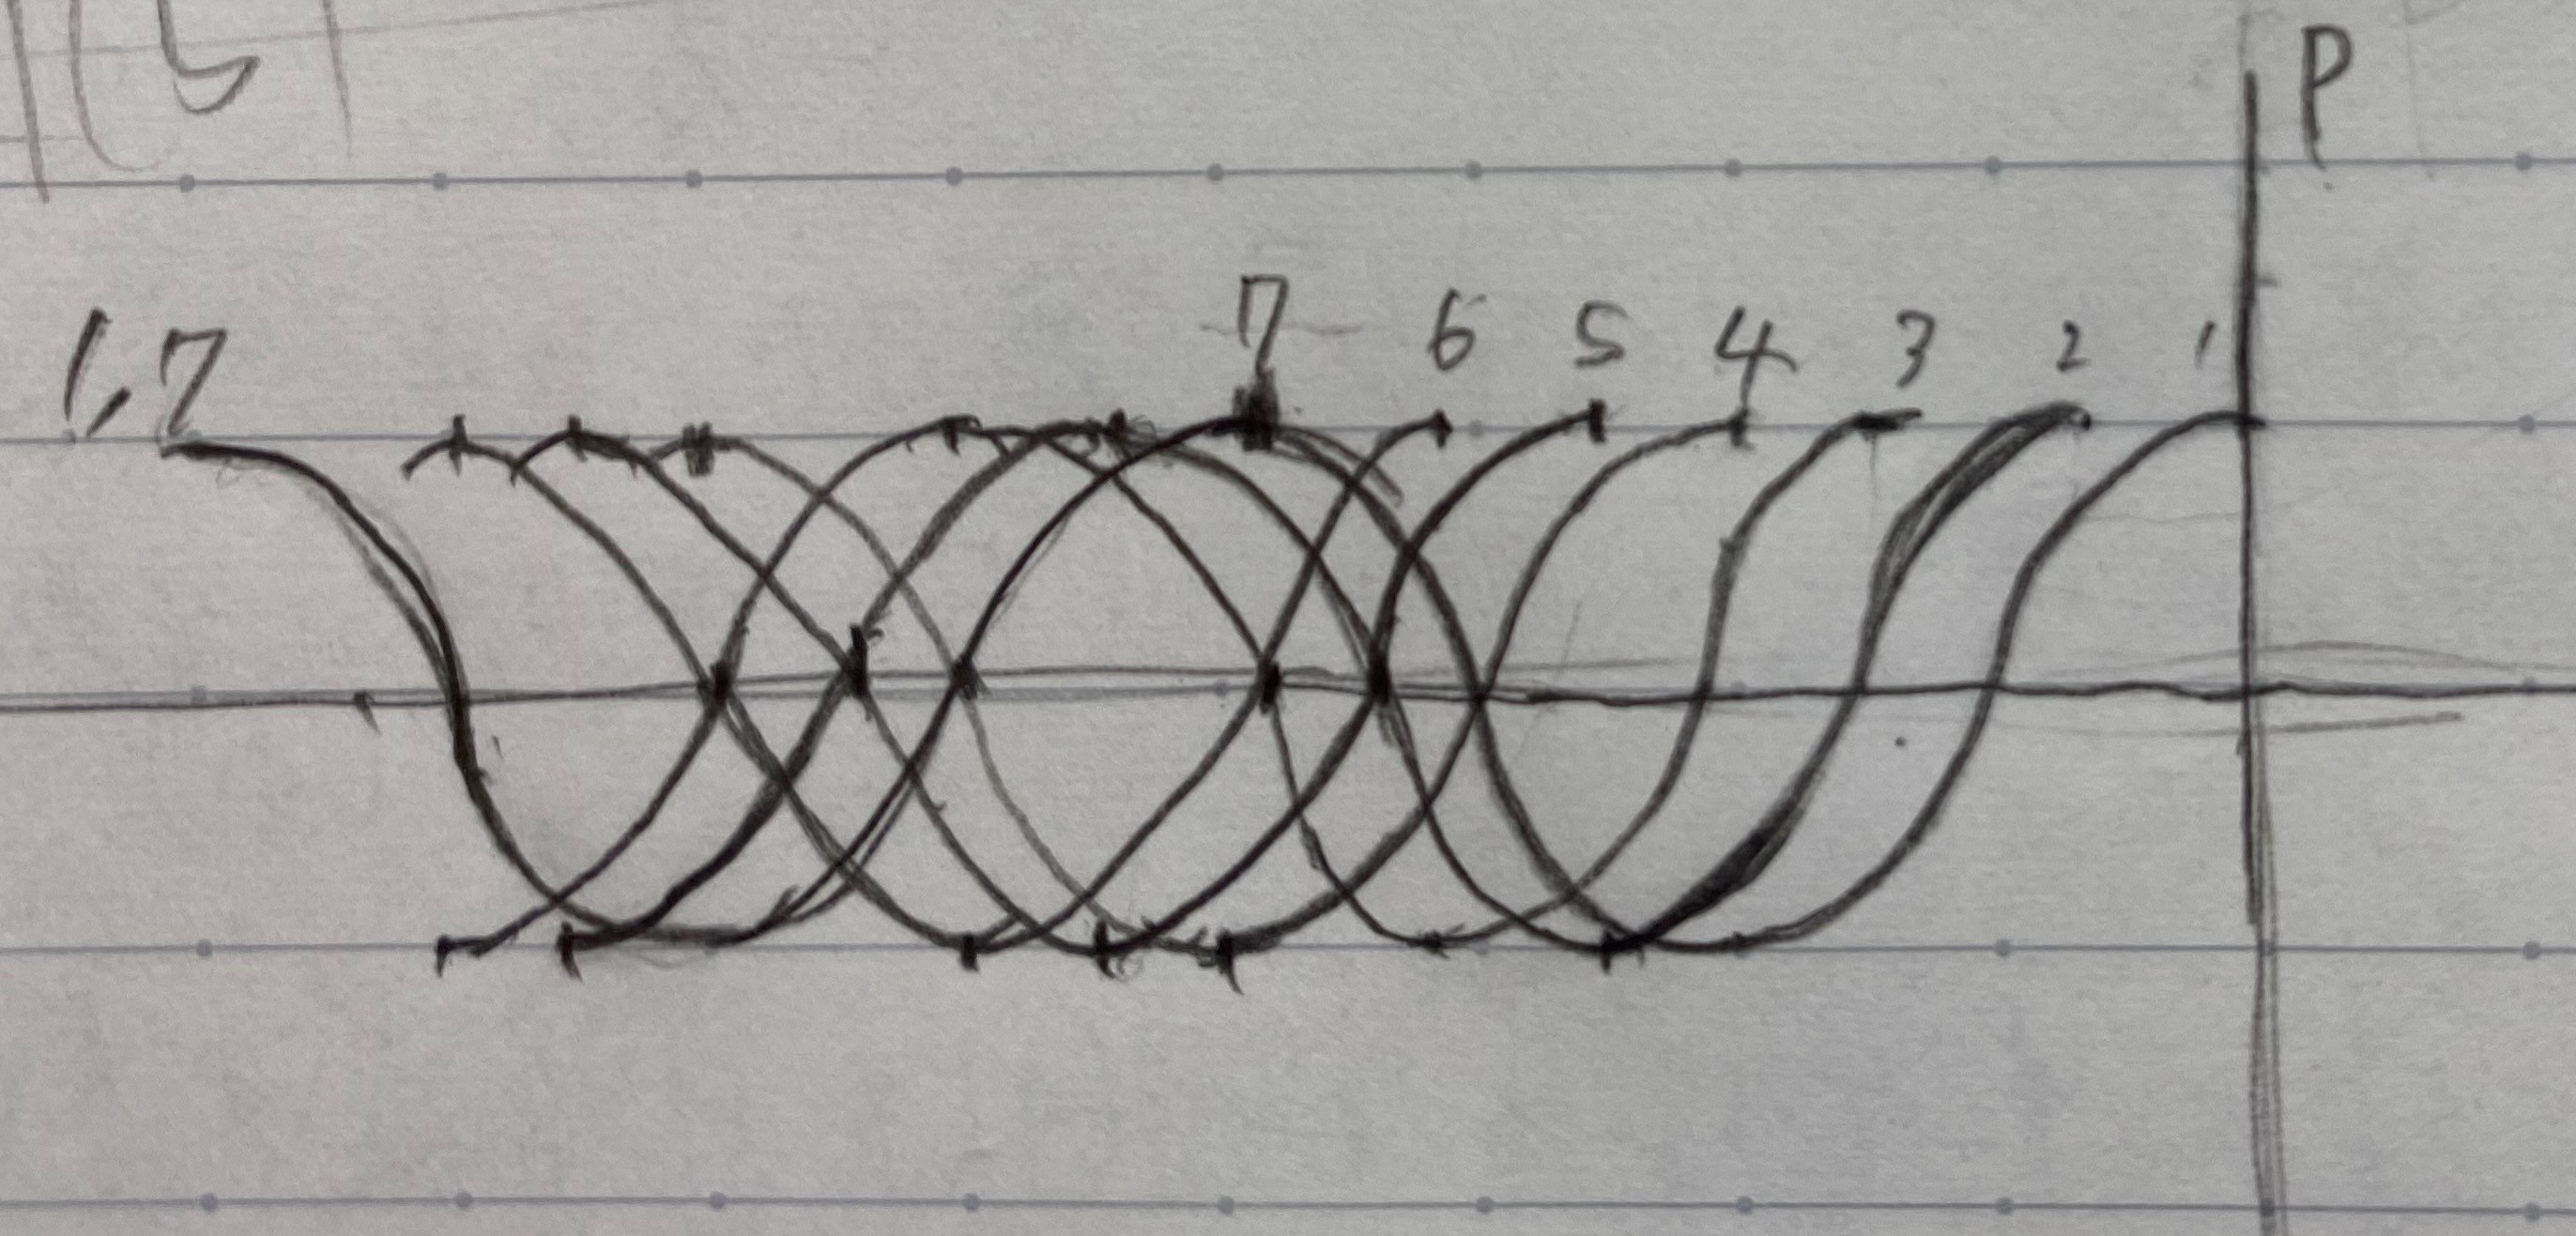 P
1,7 7 6 5 4 3 2 1